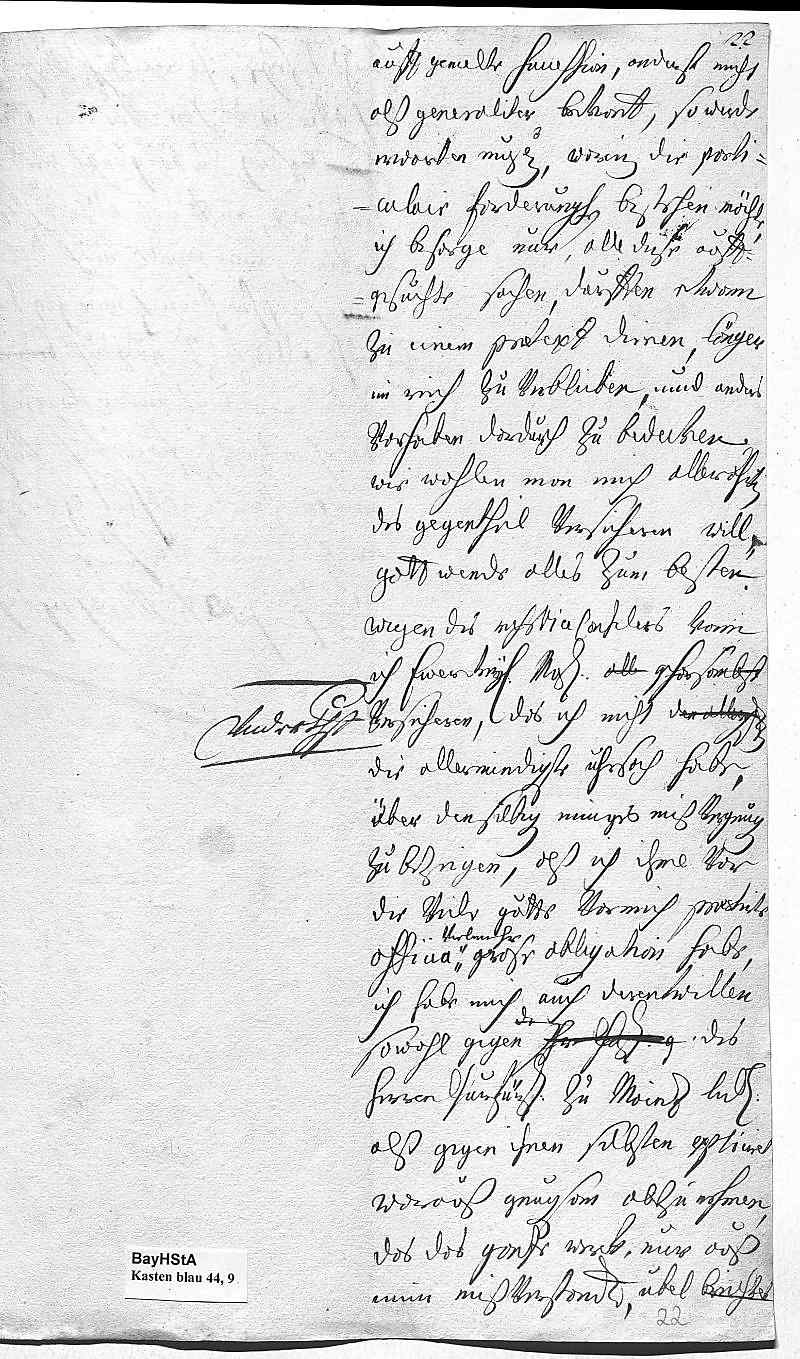 22
auff gemelte succession, anderst nicht
alß generaliter bekant, so werde
erwarten müßen, worin die parti=
=cular forderungh bestehen möchte,
ich besorge nur, alle diese auff=
=gesuchte sachen, dürfften etwann
zu einem prætext dienen, länger
im reich zu verbleiben, und anders
vorhaben dardurch zu bedecken.
wie wohlen man mich
des gegentheil versicheren will,
gott wende alles zum besten.
wegen des kan
ich Ewer gehorsambst
versicheren, das ich nicht
die allermindigste uhrsach habe,
über denselben einiges mißvergnüg
zu bezeigen, alß ich ihme vor
die viele gutte vor mich præstirte
officia große obligation habe,
ich habe mich auch derentwillen
sowohl gegen des
herren Churfürst. zu Maintz
alß gegen ihnen selbsten explicirt
woraus gnugsam abzunehmen,
das das gantze werck, nur auß
einem mißverstandt, übel
22
BayHStA
Kasten blau 44, 9